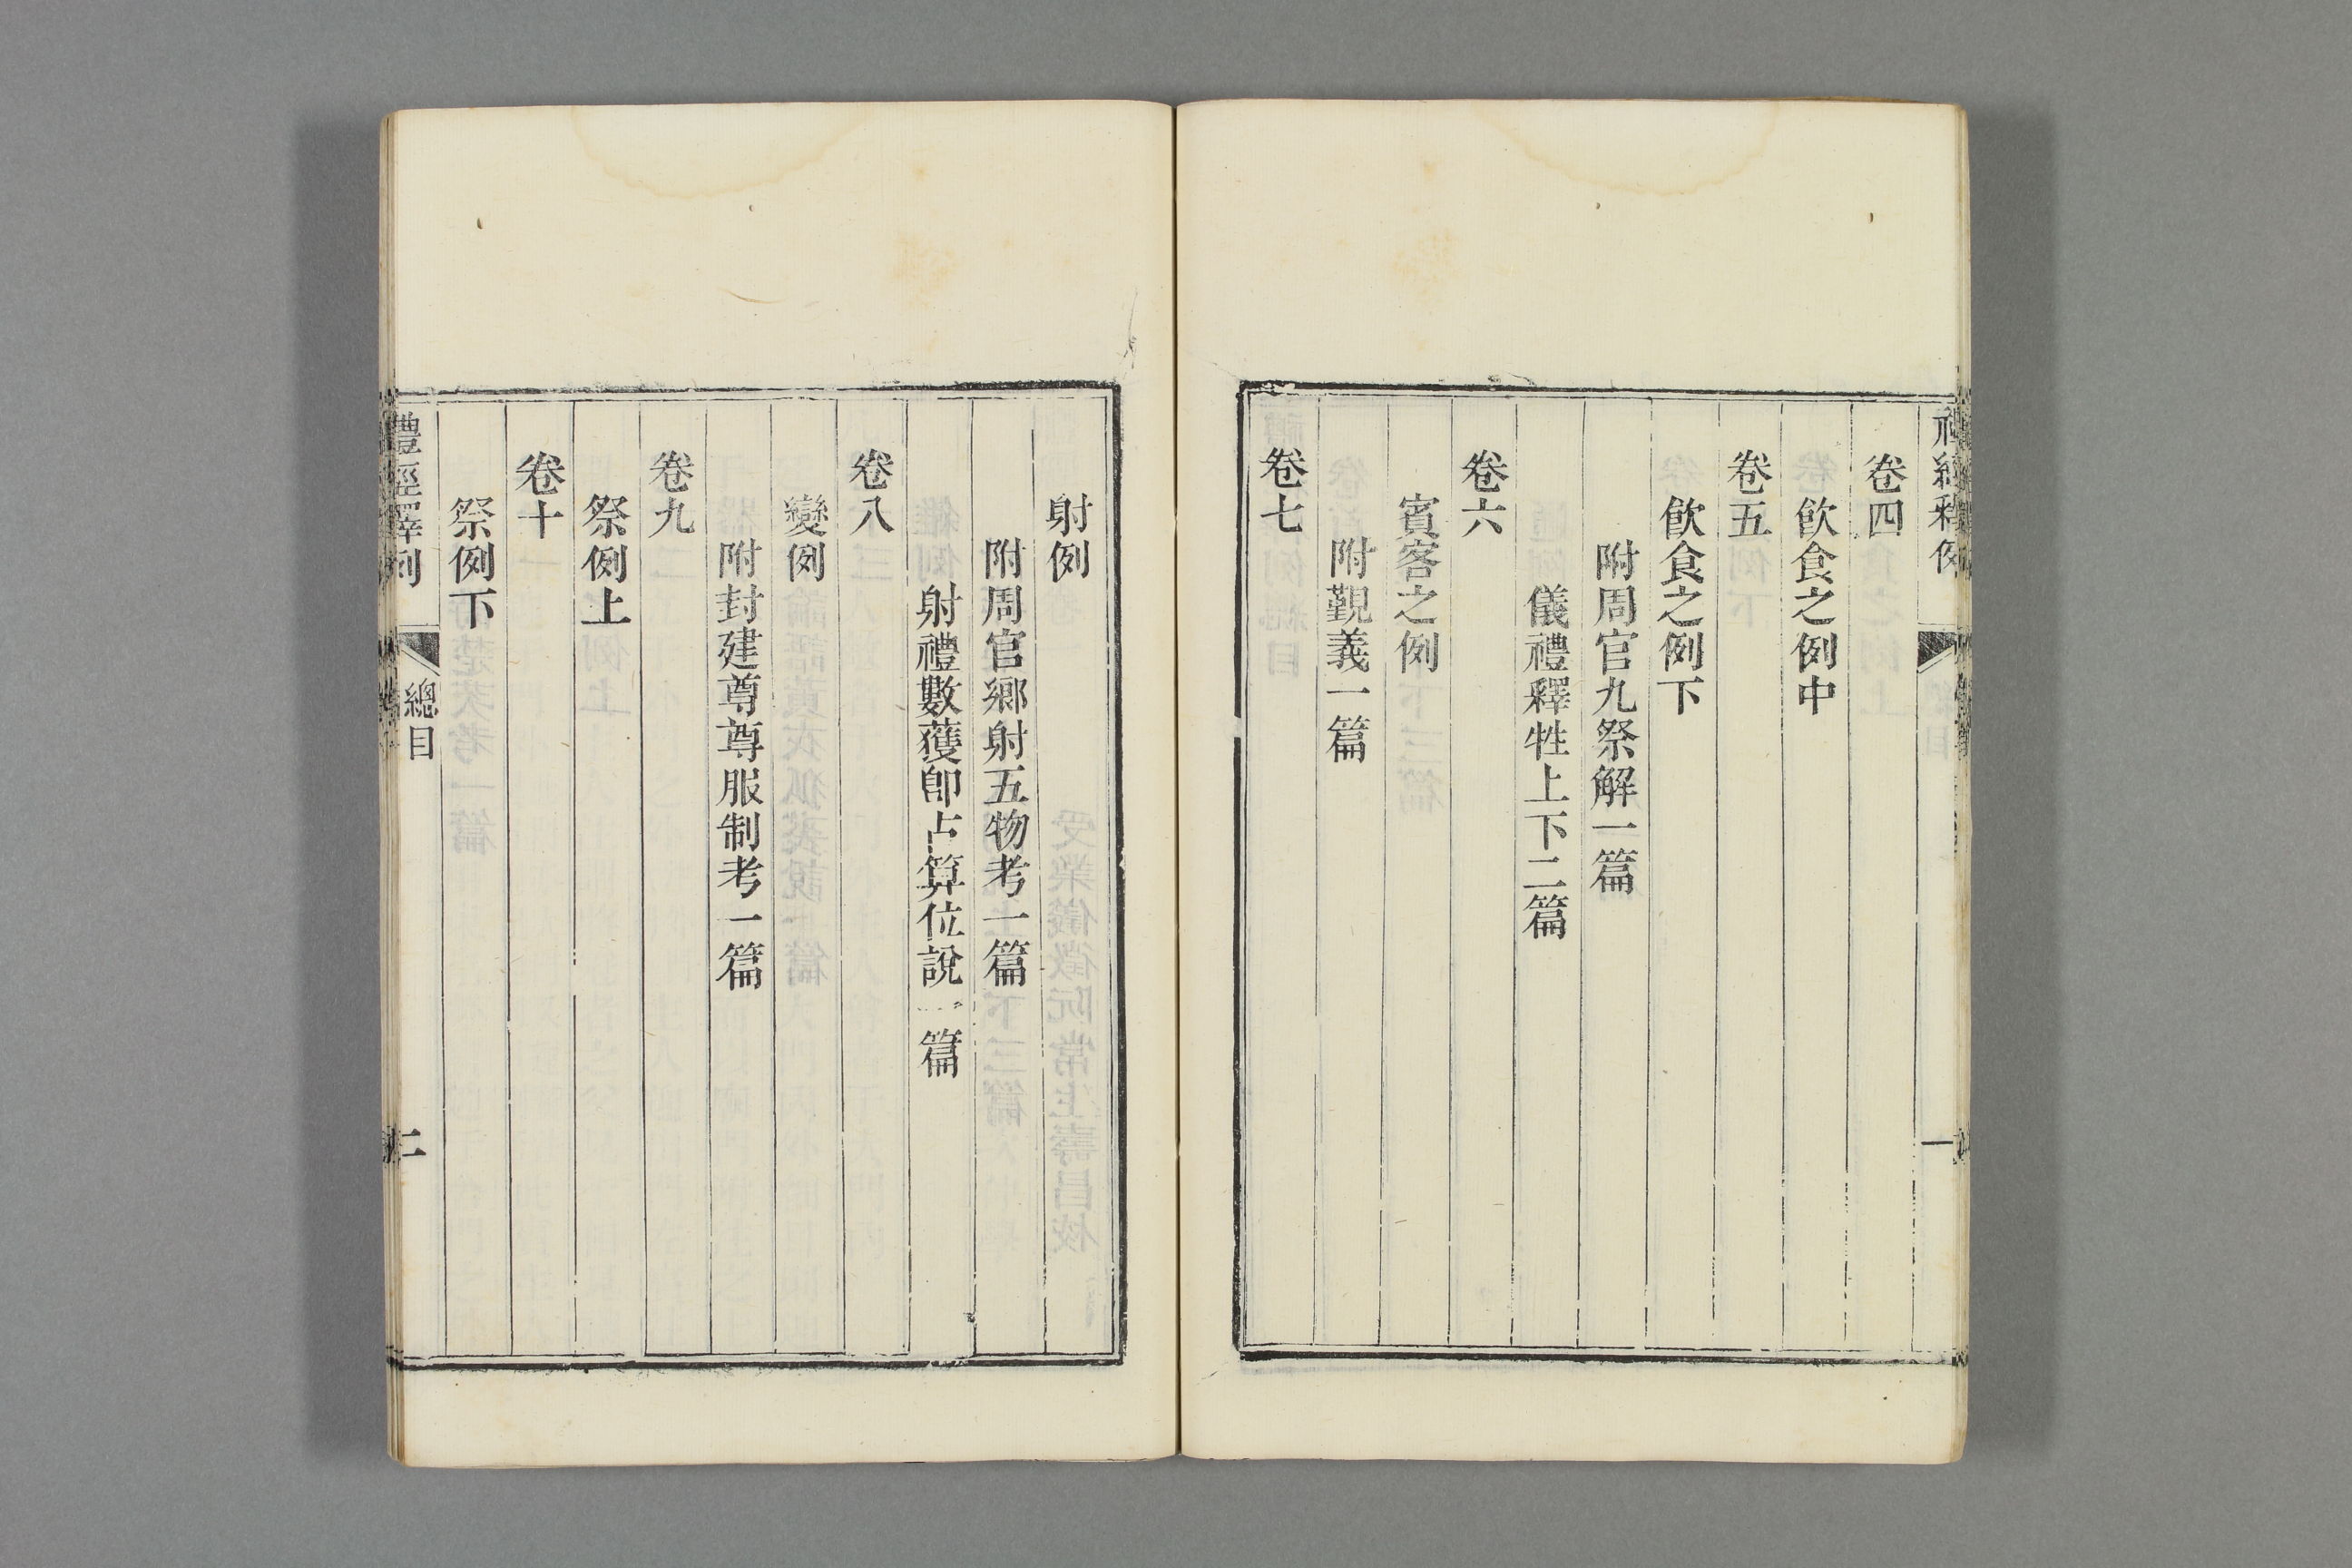 卷四
飮食之例中
卷五
飮食之例下
附周官九祭解一篇
儀禮釋牲上下二篇
卷六
賓客之例
附覲義一篇
卷七
射例
附周官鄉射五物考一篇
射禮數獲卽占算位說一篇
卷八
變例
附封建尊尊服制考一篇
卷九
祭例上
卷十
祭例下
禮經釋例
總目
二